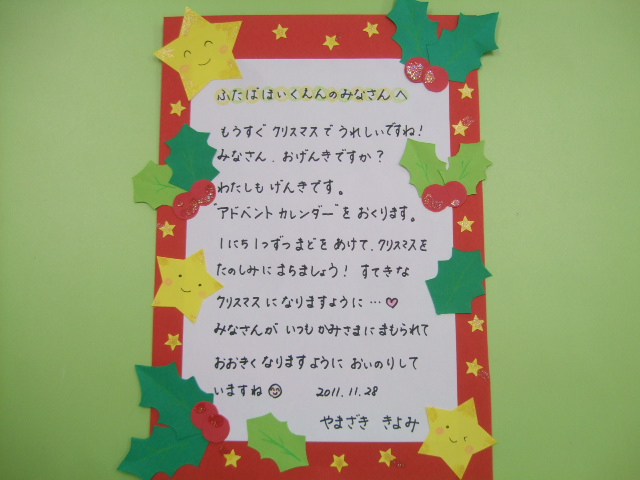 ふたばほいくえんのみなさんへ
もうすぐ クリスマスで うれしいですね!
みなさん、おげんきですか?
わたしも げんきです。
"アドベント カレンダー"を おくります。
1にち 1つずつ まどを あけて、クリスマスを
たのしみに まちましょう! すてきな
クリスマス に なりますように…♡
みなさんが いつも かみさまに まもられて
おおきく なりますように おいのりして
いますね☺ 2011.11.28
やまざき きよみ